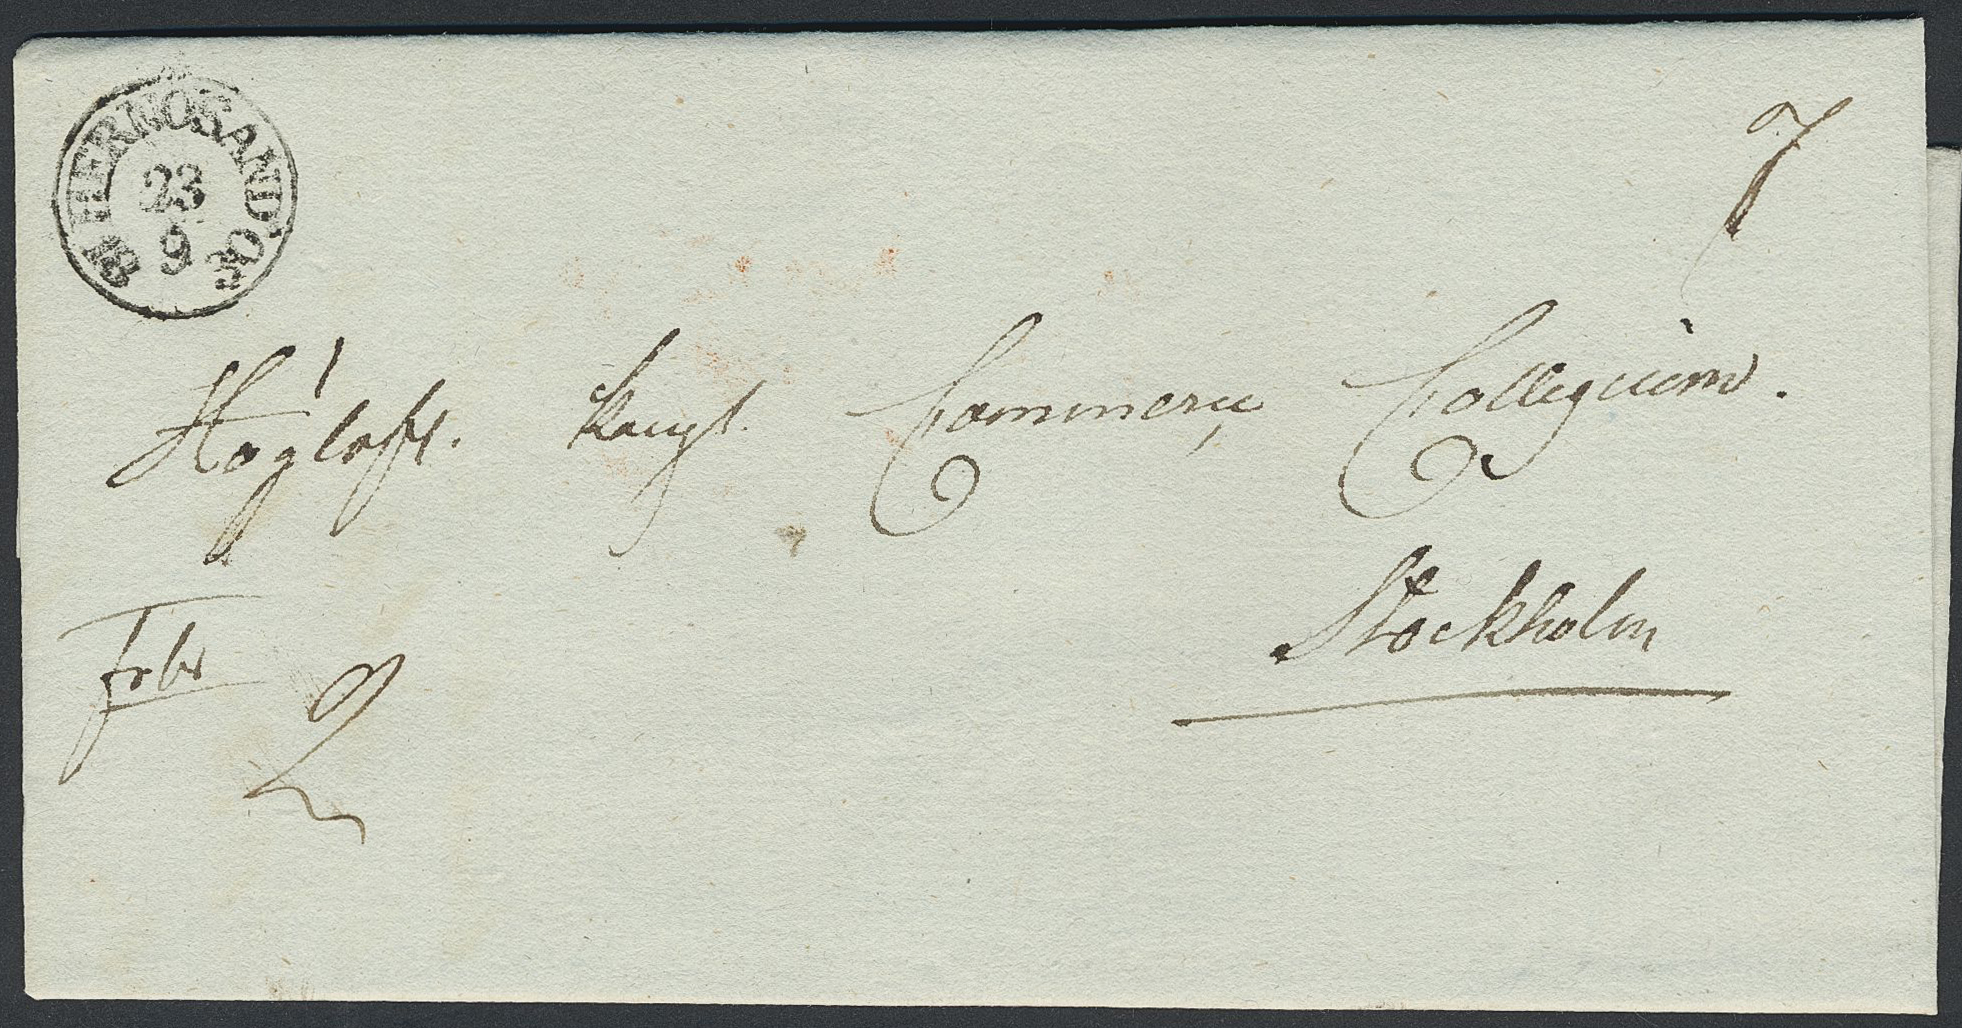 HERNOSAND
23
9
7
Höglofl. Kongl. Commerce Collegium.
Stockholm
frbr
2